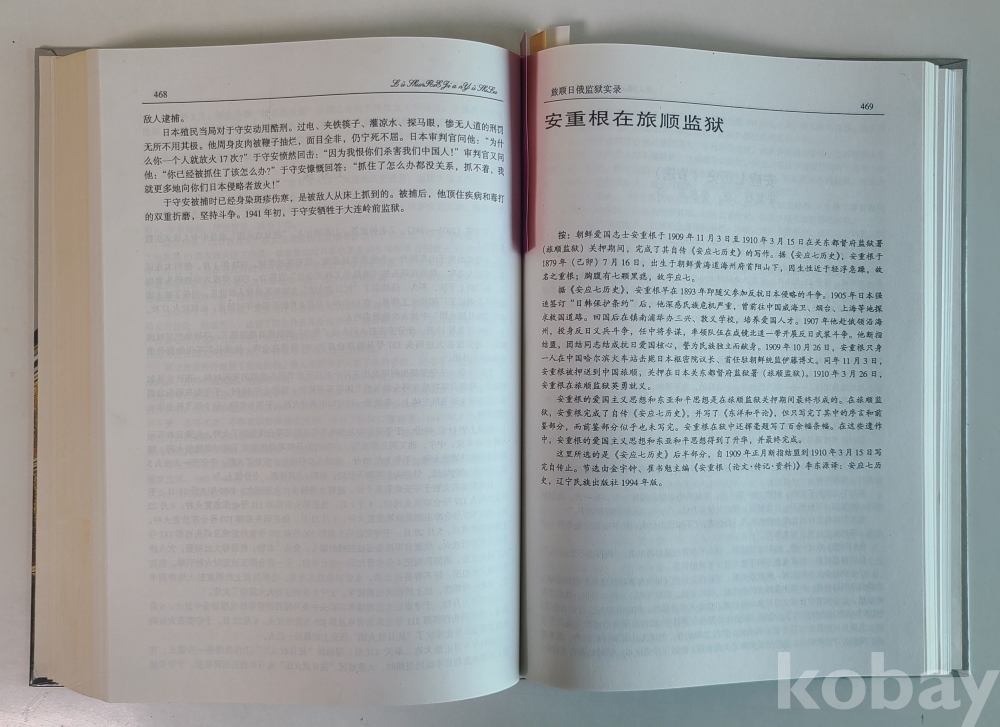 468
敌人逮捕。
日本殖民当局对于守安动用酷刑。过电、夹铁筷子、灌凉水、探马眼，惨无人道的刑罚
无所不用其极。他周身皮肉被鞭子抽烂，面目全非，仍宁死不屈。日本审判官问他：“为什
么你一个人就放火 17 次？”于守安愤然回击：“因为我恨你们杀害我们中国人！”审判官又问
他：“你已经被抓住了该怎么办？”于守安慷慨回答：“抓住了怎么办都没关系，抓不着，我
就更多地向你们日本侵略者放火！”
于守安被捕时已经身染斑疹伤寒，是被敌人从床上抓到的。被捕后，他顶住疾病和毒打
的双重折磨，坚持斗争。1941 年初，于守安牺牲于大连岭前监狱。
旅顺日俄监狱实录
469
安重根在旅顺监狱
按：朝鲜爱国志士安重根于 1909 年 11 月 3 日至 1910 年 3 月 15 日在关东都督府监狱署
（旅顺监狱）关押期间，完成了其自传《安应七历史》的写作。据《安应七历史》，安重根于
1879 年（己卯）7 月 16 日，出生于朝鲜黄海道海州府首阳山下，因生性近于轻浮急躁，故
名之重根；胸腹有七颗黑痣，故字应七。
据《安应七历史》，安重根早在 1893 年即随父参加反抗日本侵略的斗争。1905 年日本强
迫签订“日韩保护条约”后，他深感民族危机严重，曾前往中国威海卫、烟台、上海等地探
求救国道路。回国后在镇南浦举办三兴、敦义学校，培养爱国人才。1907 年他赴俄领沿海
州，投身反日义兵斗争，任中将参谋，率领队伍在咸镜北道一带开展反日武装斗争。他断指
结盟，团结同志结成抗日爱国核心，誓为民族独立而献身。1909 年 10 月 26 日，安重根只身
一人在中国哈尔滨火车站击毙日本枢密院议长、首任驻朝鲜统监伊藤博文。同年 11 月 3 日，
安重根被押送到中国旅顺，关押在日本关东都督府监狱署（旅顺监狱）。1910 年 3 月 26 日，
安重根在旅顺监狱英勇就义。
安重根的爱国主义思想和东亚和平思想是在旅顺监狱关押期间最终形成的。在旅顺监
狱，安重根完成了自传《安应七历史》，并写了《东洋和平论》，但只写完了其中的序言和前
鉴部分，而前鉴部分似乎也未写完。安重根在狱中还挥毫题写了百余幅条幅。在这些遗作
中，安重根的爱国主义思想和东亚和平思想得到了升华，并最终完成。
这里所选的是《安应七历史》后半部分，自 1909 年正月断指结盟到 1910 年 3 月 15 日写
完自传止。节选由金宇钟、崔书勉主编《安重根（论文·传记·资料）》李东源译：安应七历
史，辽宁民族出版社 1994 年版。
kobay